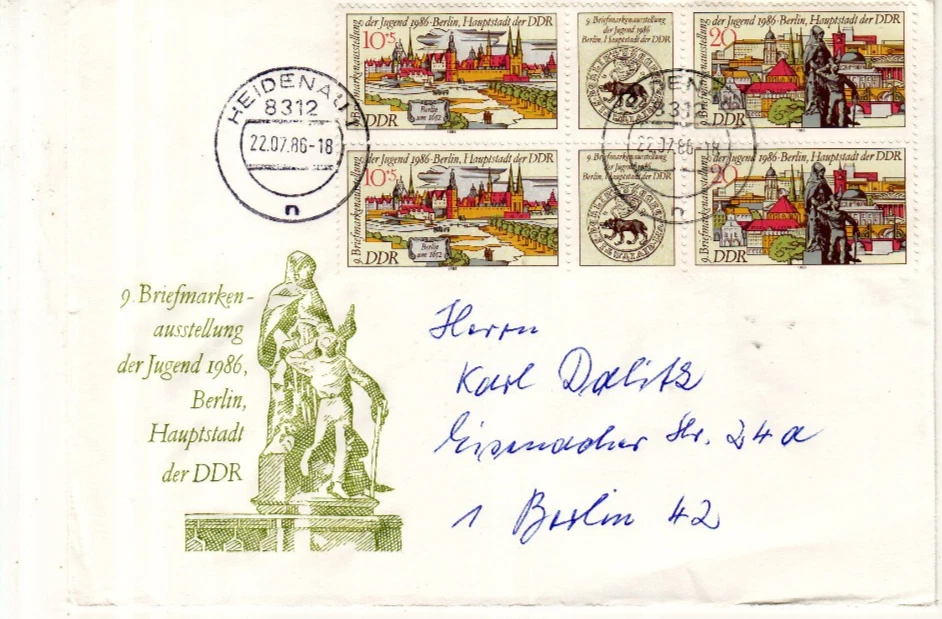 9. Briefmarkenausstellung
der Jugend 1986 · Berlin, Hauptstadt der DDR
10+5
Berlin
um 1652
DDR
9. Briefmarkenausstellung
der Jugend 1986
Berlin, Hauptstadt der DDR
9. Briefmarkenausstellung
der Jugend 1986 · Berlin, Hauptstadt der DDR
20
DDR
HEIDENAU 1
8312
22.07.86-18
n
DEN
831
22.07.86-18
n
9. Briefmarkenausstellung
der Jugend 1986 · Berlin, Hauptstadt der DDR
10+5
Berlin
um 1652
DDR
9. Briefmarkenausstellung
der Jugend 1986
Berlin, Hauptstadt der DDR
9. Briefmarkenausstellung
der Jugend 1986 · Berlin, Hauptstadt der DDR
20
DDR
9. Briefmarken-
ausstellung
der Jugend 1986,
Berlin,
Hauptstadt
der DDR
Herrn
Karl Dalitz
Eisenacher Str. 24a
1 Berlin 42